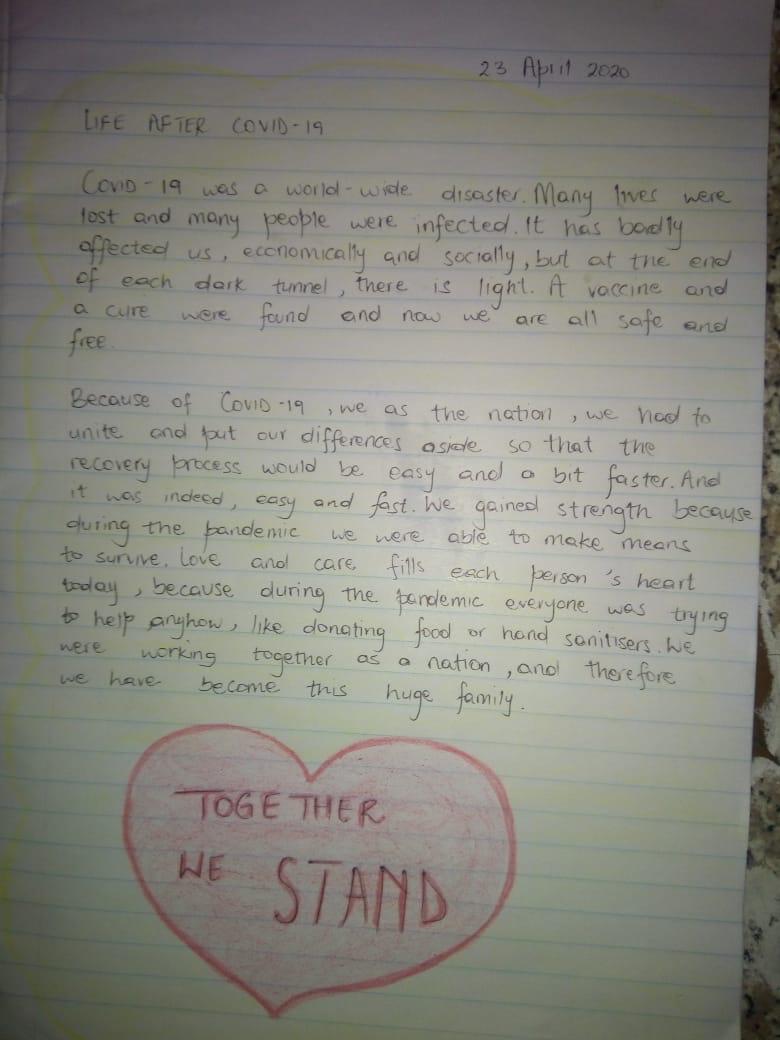 23 April 2020
LIFE AFTER COVID-19
COVID-19 was a world-wide disaster. Many lives were
lost and many people were infected. It has badly
affected us, economically and socially, but at the end
of each dark tunnel, there is light. A vaccine and
a cure were found and now we are all safe and
free.
Because of COVID-19, we as the nation, we had to
unite and put our differences aside so that the
recovery process would be easy and a bit faster. And
it was indeed, easy and fast. We gained strength because
during the pandemic we were able to make means
to survive. Love and care fills each person's heart
today, because during the pandemic everyone was trying
to help anyhow, like donating food or hand sanitisers. We
were working together as a nation, and therefore
we have become this huge family.
TOGETHER
WE STAND